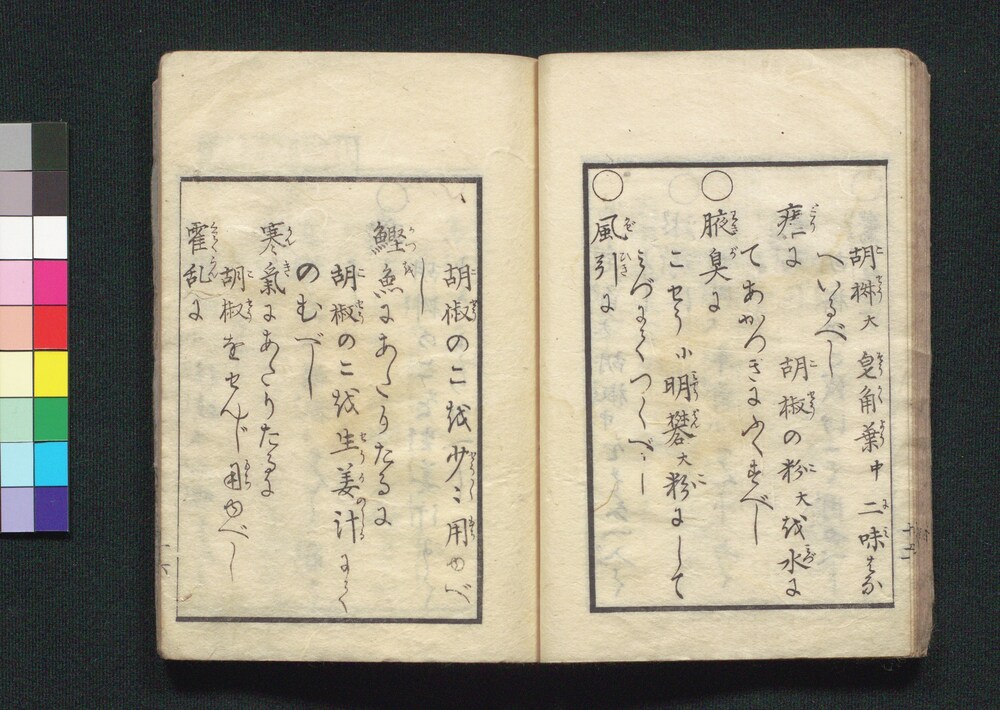 胡椒大 皂角葉中 二味はな
へいるべし
痞に 胡椒の粉大を水に
てあかつきにふくすべし
○腋臭に
こせう小明礬大粉にして
みづにてつくべし
○風引に
胡椒のこを少〻用ゆべ
し
鰹魚にあたりたるに
胡椒のこを生姜汁にて
のむべし
寒氣にあたりたるに
胡椒をせんじ用ゆべし
霍乱に